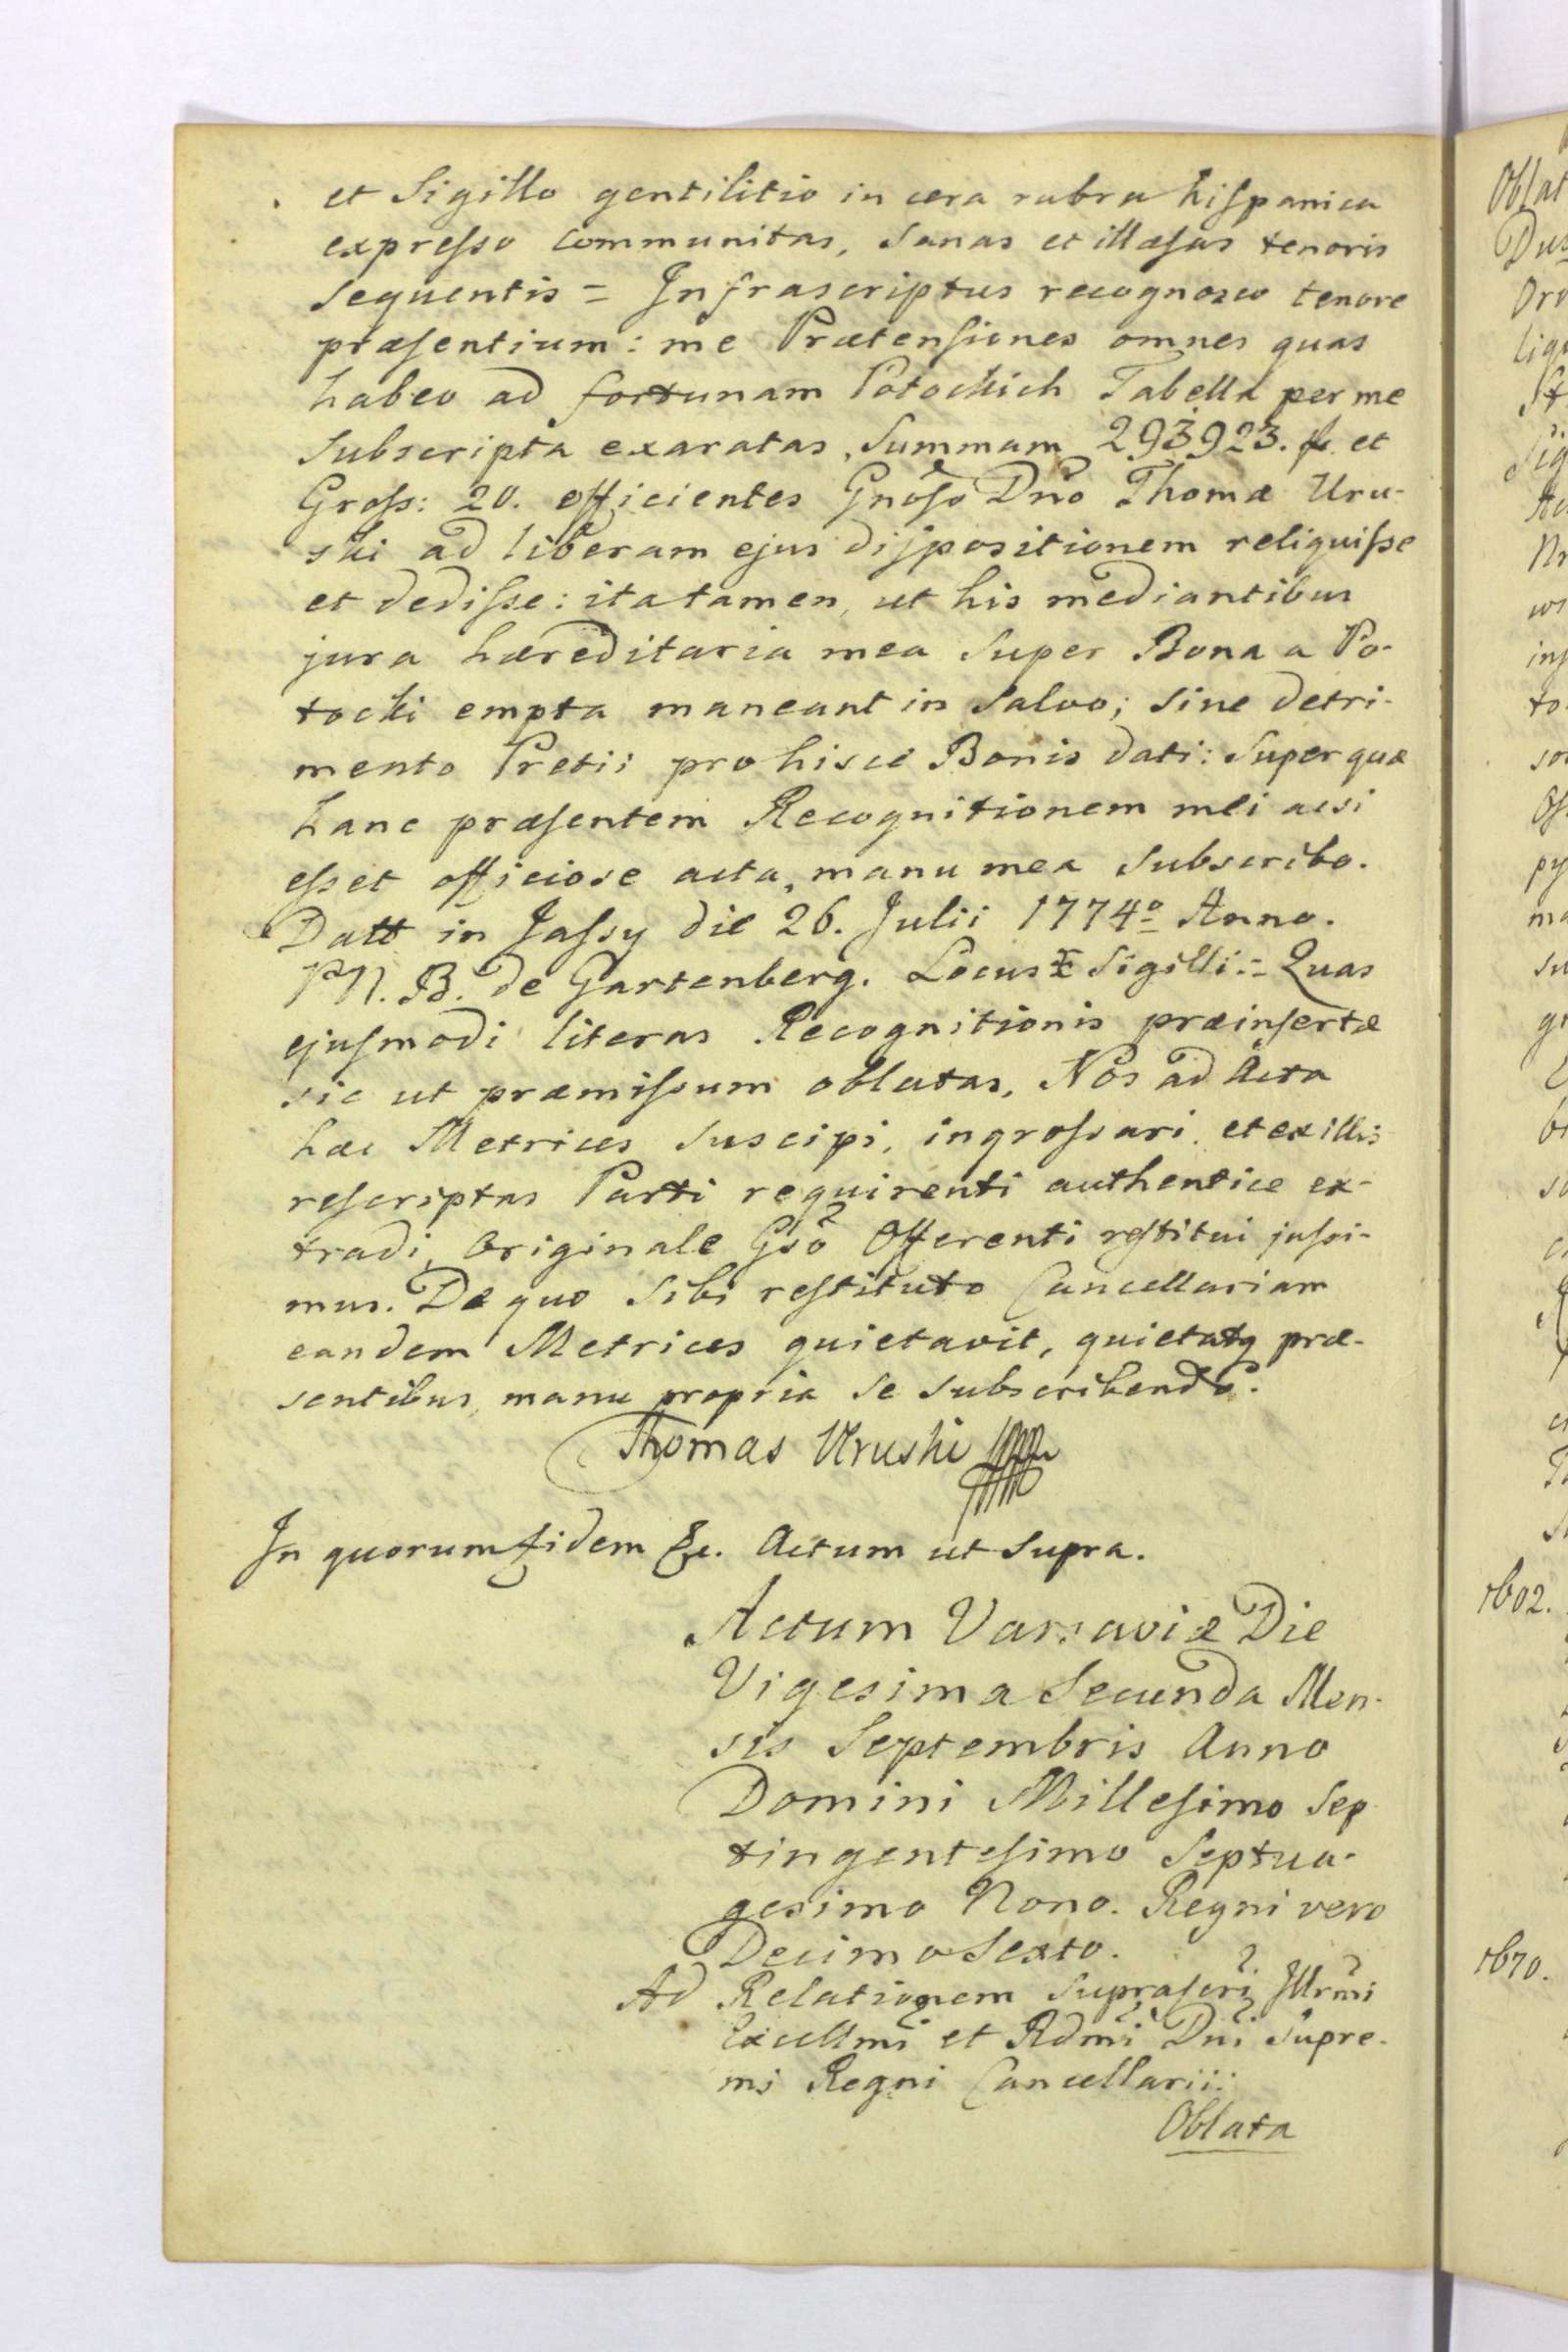 et Sigillo gentilitio in cera rubra hiſpanica
expreſso communitas, Sanas et illæſas tenoris
Sequentis = Infrascriptus recognosco tenore
præſentium: me Prætenſiones omnes quas
habeo ad fortunam Potockich Tabella per me
Subscripta exaratas, Summam 293923. fl. et
Groſs: 20. efficientes Gnoſo Dno Thomæ Uru-
ski ad liberam ejus diſpositionem reliquiſse
et dediſse: ita tamen, ut his mediantibus
jura hæreditaria mea Super Bona a Po-
tocki empta maneant in Salvo; Sine detri-
mento Pretii pro hisce Bonis dati: Super quæ
hanc præſentem Recognitionem mei acsi
eſset officiose acta, manu mea Subscribo.
Datt in Jaſsy die 26. Julii 1774º Anno.
PN. B. de Gartenberg. Locus Sigilli:= Quas
ejuſmodi literas Recognitionis præinſertæ
sic ut præmiſsum oblatas, Nos ad Acta
hæc Metrices Suscipi, ingroſsari, et ex illis
reſcriptas Parti requirenti authentice ex-
tradi, Originale Gso Offerenti reſtitui juſsi-
mus. De quo Sibi reſtituto Cancellariam
eandem Metrices quietavit, quietatq præ-
sentibus, manu propria Se Subscribendo.
Thomas Uruski
In quorum fidem &c. Actum ut Supra.
Actum Varsaviæ Die
Vigesima Secunda Men-
sis Septembris Anno
Domini Milleſimo Sep
tingenteſimo Septua-
gesimo Nono. Regni vero
Decimo Sexto.
Ad Relationem Supraſcri Illrmi
Excellmi et Rdmi Dni Supre-
mi Regni Cancellarii:
Oblata
Oblat
Ord
1602.
1670.